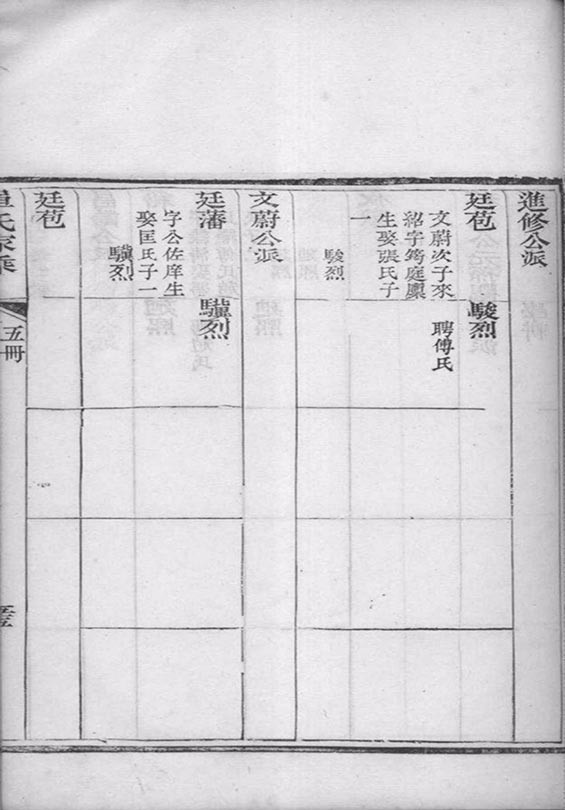 進修公派
廷苞
文蔚次子來
紹字筠庭廩
生娶張氏子
一
駿烈
駿烈
聘傅氏
文蔚公派
廷藩
字公佐庠生
娶匡氏子一
驥烈
驥烈
廷苞
氏家乘
五冊